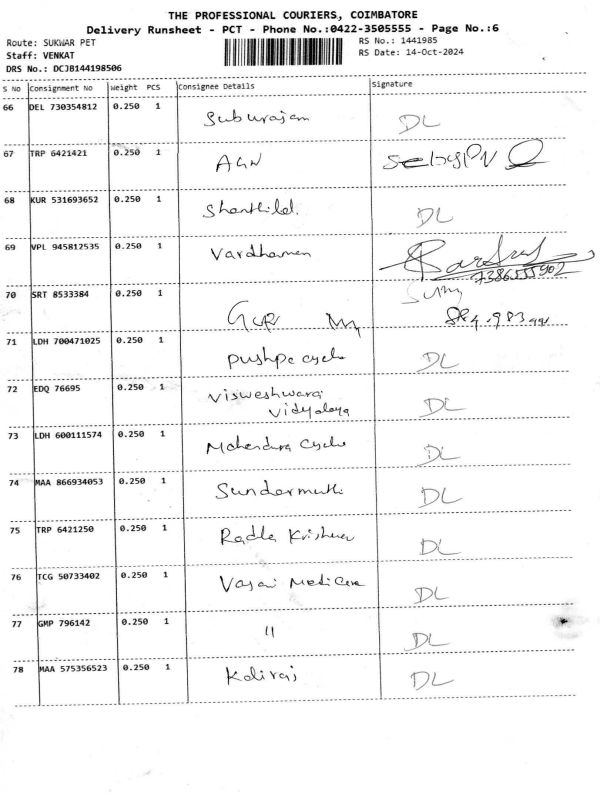 THE PROFESSIONAL COURIERS, COIMBATORE
Delivery Runsheet - PCT - Phone No.:0422-3505555 - Page No.:6
Route: SUKWAR PET RS No.: 1441985
Staff: VENKAT RS Date: 14-Oct-2024
DRS No.: DCJB144198506
S No Consignment No Weight PCS Consignee Details Signature
66 DEL 730354812 0.250 1 Suburajam DL
67 TRP 6421421 0.250 1 AGN
68 KUR 531693652 0.250 1 DL
69 VPL 945812535 0.250 1 Vardhaman
7386555902
70 SRT 8533384 0.250 1
71 LDH 700471025 0.250 1 Pushpa cycle DL
72 EDQ 76695 0.250 1 Visweshwarai
Vidyalaya DL
73 LDH 600111574 0.250 1 Mahendura Cycle DL
74 MAA 866934053 0.250 1 Sundermuthi DL
75 TRP 6421250 0.250 1 Radha Krishna DL
76 TCG 50733402 0.250 1 Vasan Medicare DL
77 GMP 796142 0.250 1 11 DL
78 MAA 575356523 0.250 1 Kaliraj DL